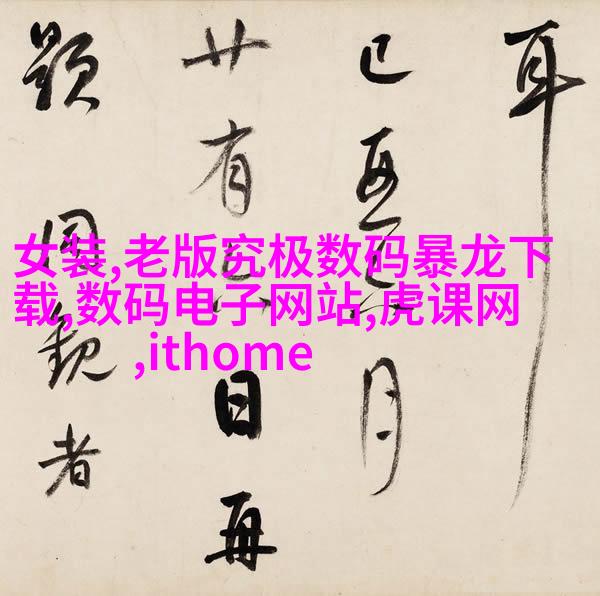 女装,老版究极数码暴龙下
载,数码电子网站,虎课网
,ithome
耳
已月
廿有日再
題同觀者